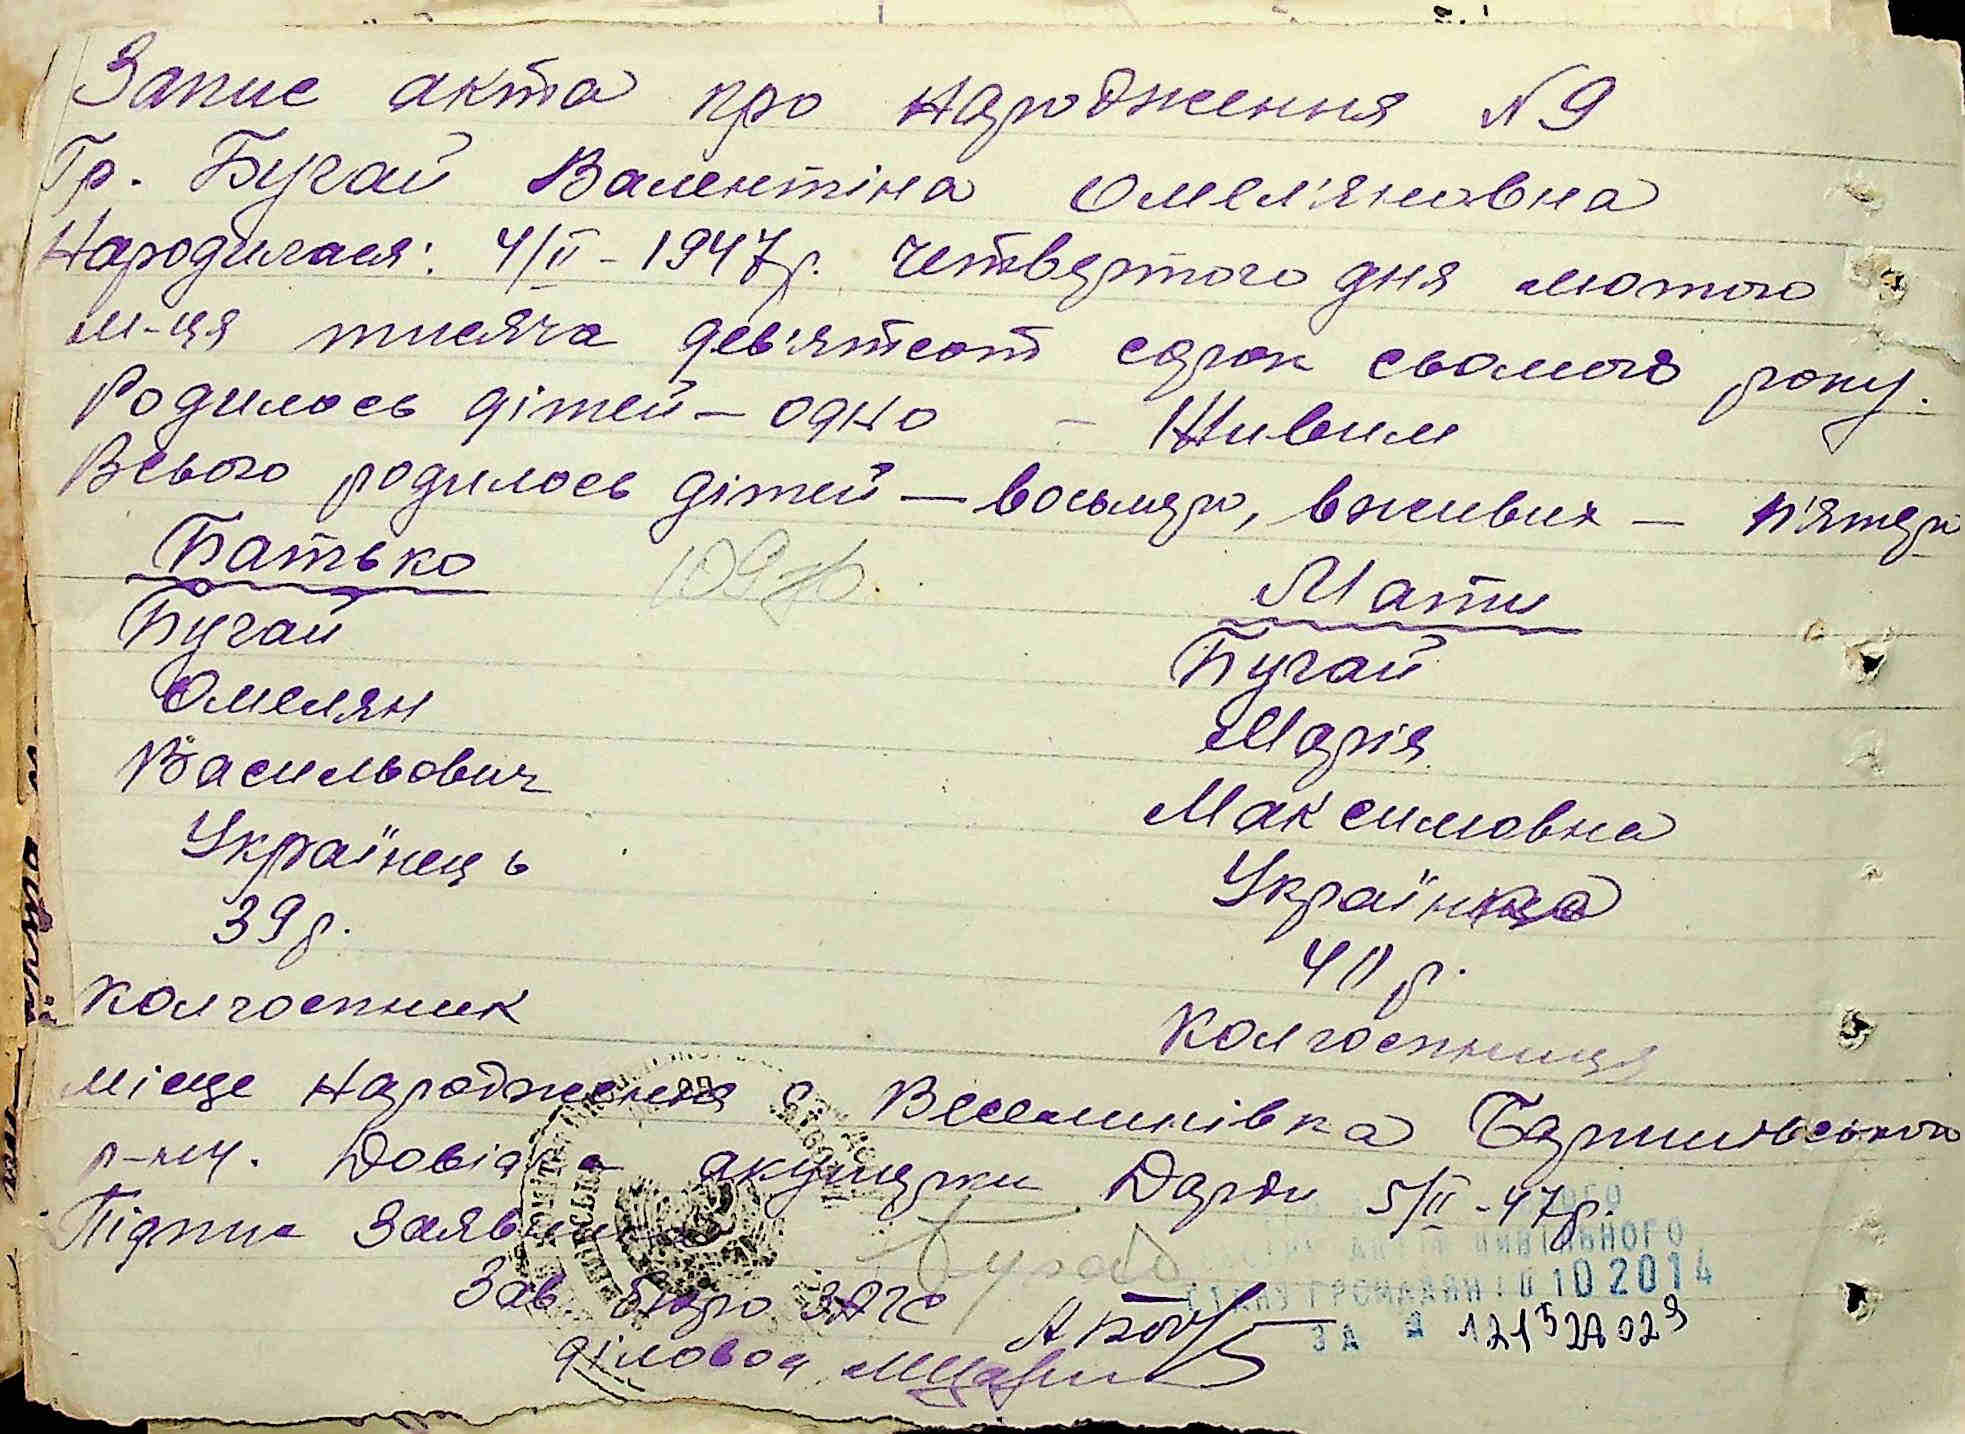 Запис акта про народження N 9
Гр. Бугай Валентіна Омел'яновна
Народилася: 4/II - 1947 р. Четвертого дня лютого
м-ця тисяча дев'ятсот сорок сьомого року.
Родилось дітей - одно - Живим
Всього родилось дітей - восьмеро, вживих - п'ятеро
Батько Мати
Бугай Бугай
Омелян Марія
Васильович Максимовна
Українець Українка
39 р. 40 р.
Колгоспник Колгоспниця
Місце народження с Веселинівка Баришівського
р-ну. Довідка акушерки Дарди 5/II - 47 р.
Підпис Заявника Бугай
Зав. бюро ЗАГС
діловод
ЦИВІЛЬНОГО
СТАНУ ГРОМАДЯН 10 2014
ЗА